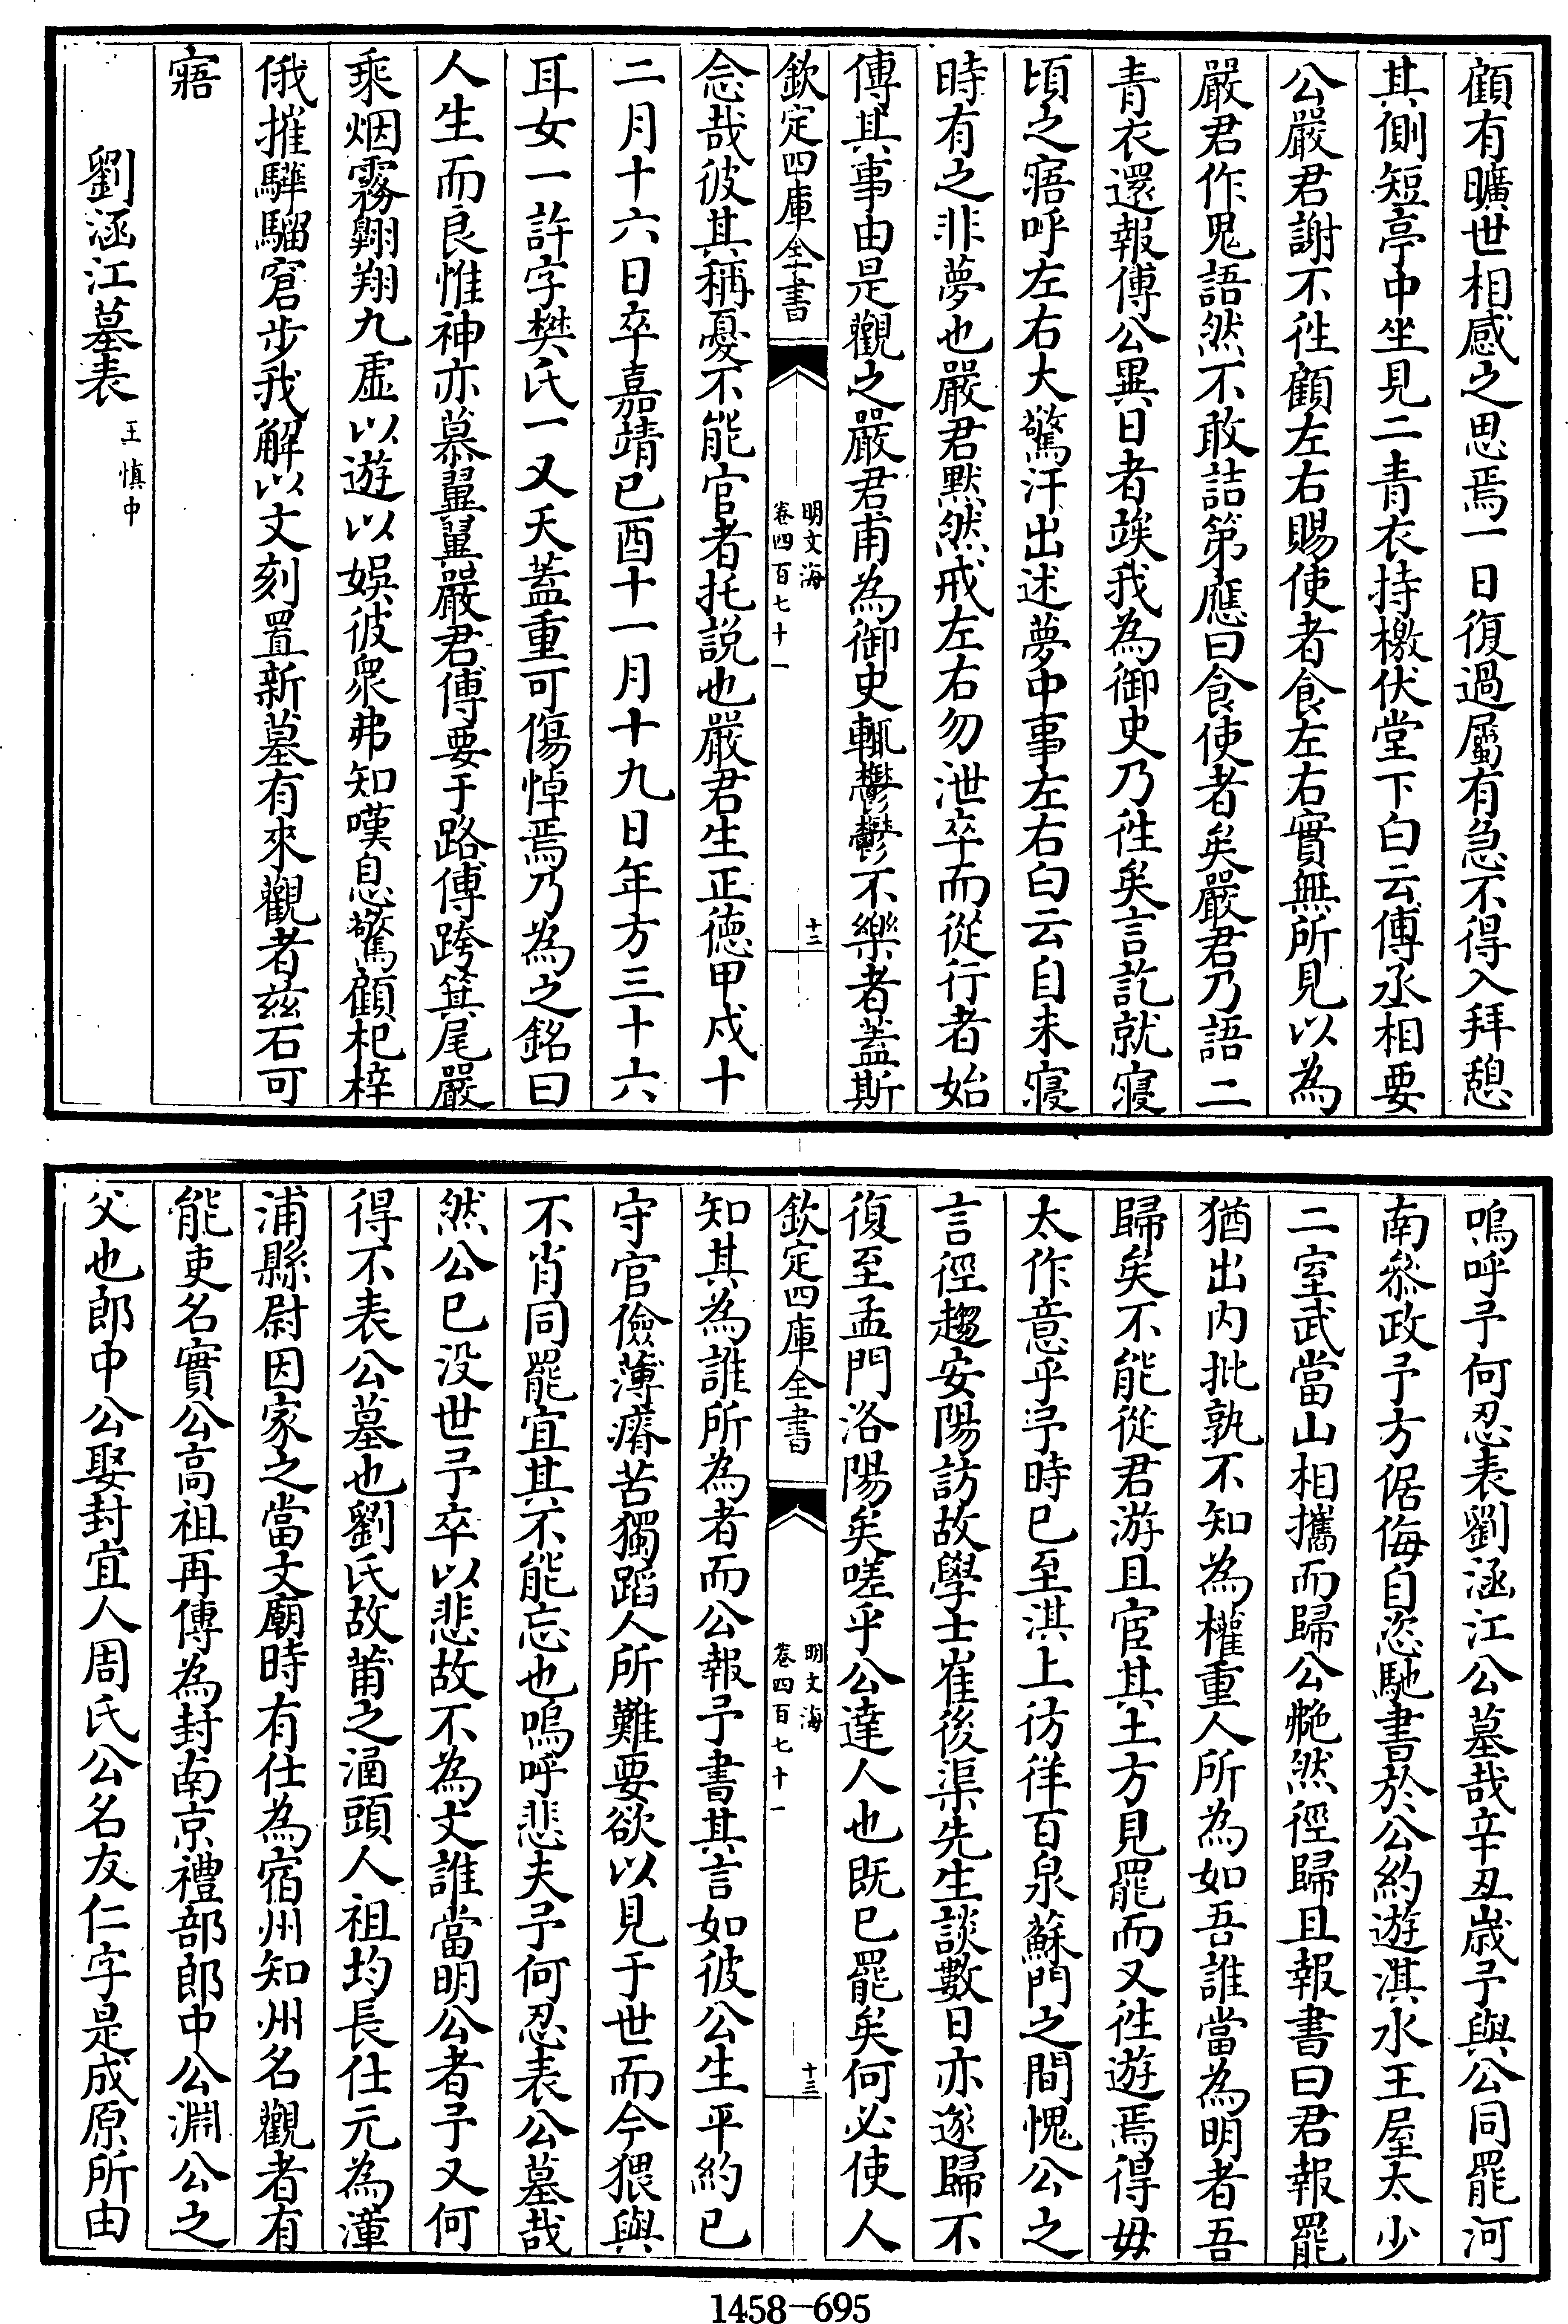 顧有曠世相感之思焉一日復過屬有急不得入拜憩
其側短亭中坐見二青衣持檄伏堂下白云傅丞相要
公嚴君謝不徃顧左右賜使者食左右實無所見以為
嚴君作鬼語然不敢詰第應曰食使者矣嚴君乃語二
青衣還報傅公異日者竢我為御史乃徃矣言訖就寝
頃之寤呼左右大驚汗出述夢中事左右白云自未寝
時有之非夢也嚴君默然戒左右勿泄卒而從行者始
傳其事由是觀之嚴君甫為御史輒鬱鬱不樂者蓋斯
欽定四庫全書
明文海
卷四百七十一
十二
念哉彼其稱憂不能官者托説也嚴君生正徳甲戍十
二月十六日卒嘉靖已酉十一月十九日年方三十六
耳女一許字樊氏一又夭蓋重可傷悼焉乃為之銘曰
人生而良惟神亦慕翼翼嚴君傅要于路傅跨箕尾嚴
乘烟霧翺翔九虚以遊以娯彼衆弗知嘆息驚顧杞梓
俄摧驊騮窘步我解以文刻置新墓有來觀者兹石可
寤
劉涵江墓表
王慎中
嗚呼予何忍表劉涵江公墓哉辛丑歳予與公同罷河
南叅政予方倨侮自恣馳書於公約遊淇水王屋太少
二室武當山相攜而歸公艴然徑歸且報書曰君報罷
猶出内批孰不知為權重人所為如吾誰當為明者吾
歸矣不能從君游且宦其土方見罷而又徃遊焉得毋
太作意乎予時已至淇上彷徉百泉蘇門之間愧公之
言徑趨安陽訪故學士崔後渠先生談數日亦遂歸不
復至孟門洛陽矣嗟乎公達人也既已罷矣何必使人
欽定四庫全書
明文海
卷四百七十一
十三
知其為誰所為者而公報予書其言如彼公生平約已
守官儉薄瘠苦獨蹈人所難要欲以見于世而今猥與
不肖同罷宜其不能忘也嗚呼悲夫予何忍表公墓哉
然公已没世予卒以悲故不為文誰當明公者予又何
得不表公墓也劉氏故莆之涵頭人祖均長仕元為漳
浦縣尉因家之當文廟時有仕為宿州知州名觀者有
能吏名實公高祖再傳為封南京禮部郎中公淵公之
父也郎中公娶封宜人周氏公名友仁字是成原所由
1458-695